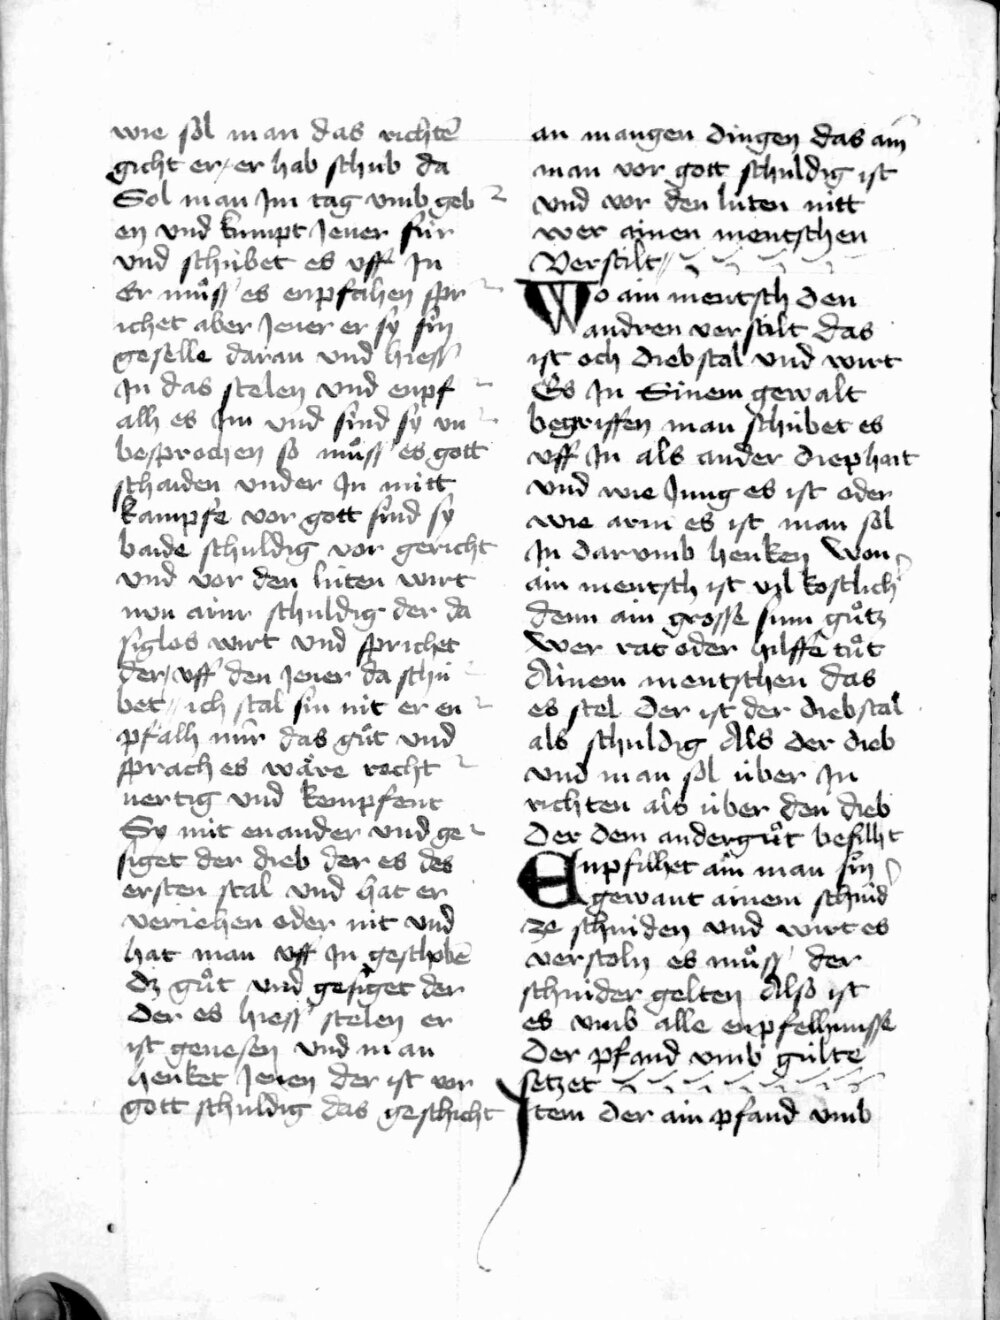 wie sol man das richtē
gicht er / er hab schub da
Sol man Im tag vmb geb
en vnd kumpt Jener für
vnd schúbet es vff In
Er můsß es enpfahen spr
ichet aber Jener er sy sin
geselle daran vnd hiesß
In das stelen vnd enpf
alh es Im vnd sind sy vn
besprochen so můsß es gott
schaiden vnder In mitt
kampfe vor gott sind sy
baide schuldig vor gericht
vnd vor den lúten wirt
nun ainr schuldig der da
siglos wirt vnd sprichet
der / vff den Jener da schú
bet // ich stal sin nit er en
pfalh mir das gůt vnd
sprach es wäre recht
uertig vnd kempfent
Sy mit enander vnd ge
siget der dieb der es des
ersten stal vnd hat er
veriehen oder nit vnd
hat man vff In geschobē
dz gůt vnd gesiget der
der es hiesß stelen er
ist genesen vnd man
henket Jenen der ist vor
gott schuldig das geschicht
an mangen dingen das ain
man vor gott schuldig ist
vnd vor den lúten nitt
wer ainen mentschen
Verstilt //
Wo ain mentsch den
andren verstilt das
ist och diebstal vnd wirt
Es In Sinem gewalt
begriffen man schúbet es
vff In als ander diephait
vnd wie Jung es ist oder
wie arm es ist man sol
In darvmb henken Won
ain mentsch ist vil kostlich
denn ain grosse sum gůtz
Wer rat oder hilffe tůt
Ainem mentschen das
es stel Der ist der diebstal
als schuldig Als der dieb
vnd man sol über In
richten als über den dieb
Der dem andergůt befilht
Enpfilhet ain man sin
gewant ainem schnid
ze schniden vnd wirt es
verstoln es můsß der
schnider gelten Also ist
es vmb alle enpfelhnusse
Der pfand vmb gúlte
setzet
Item der ain pfand vmb